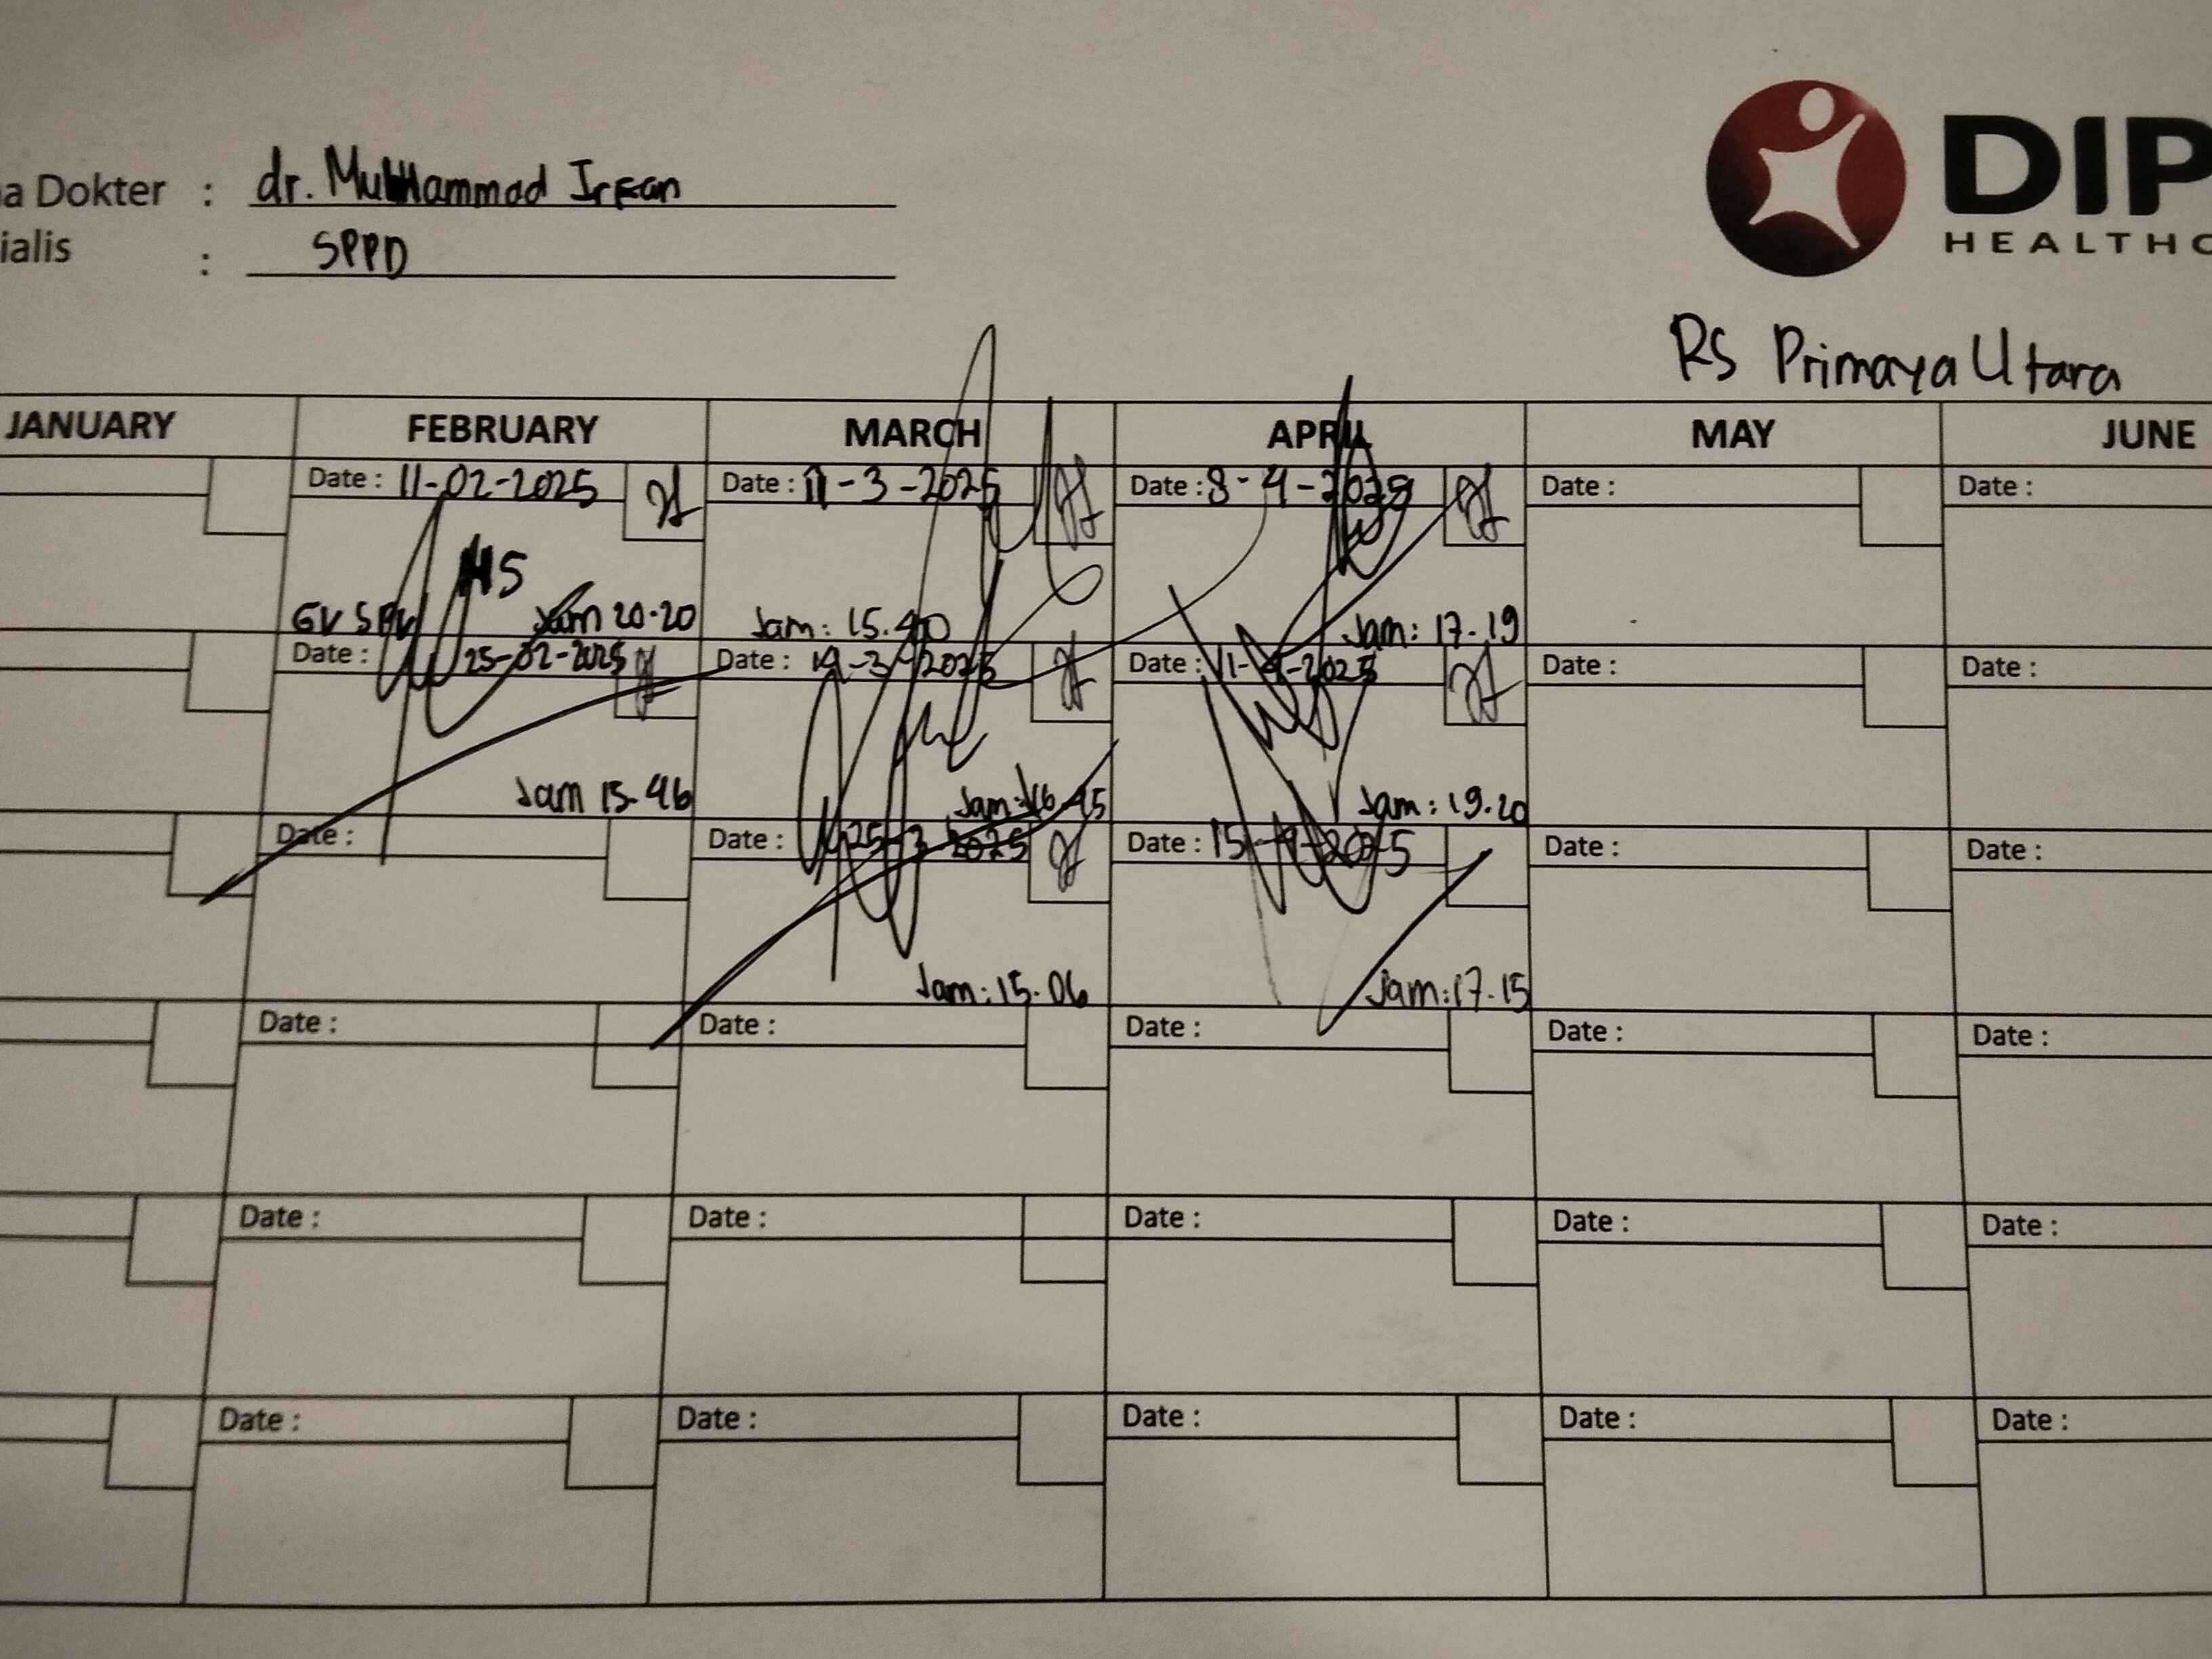 a Dokter : dr. Muhammad Irfan
ialis : SPPD
DIP
HEALTHC
RS Primaya Utara
JANUARY FEBRUARY MARCH APRIL MAY JUNE
Date : 11-02-2025 Date : 11-3-2025 Date : 8-4-2025 Date : Date :
Jam 20.20 Jam: 15.40 Jam: 17.19
Date : 25-02-2025 Date : 19-3-2025 Date : 11-4-2025 Date : Date :
Jam 15.46 Jam: 16.45 Jam: 19.20
Date : Date : 25-3-2025 Date : 15-4-2025 Date : Date :
Jam: 15.06 Jam: 17.15
Date : Date : Date : Date : Date :
Date : Date : Date : Date : Date :
Date : Date : Date : Date : Date :